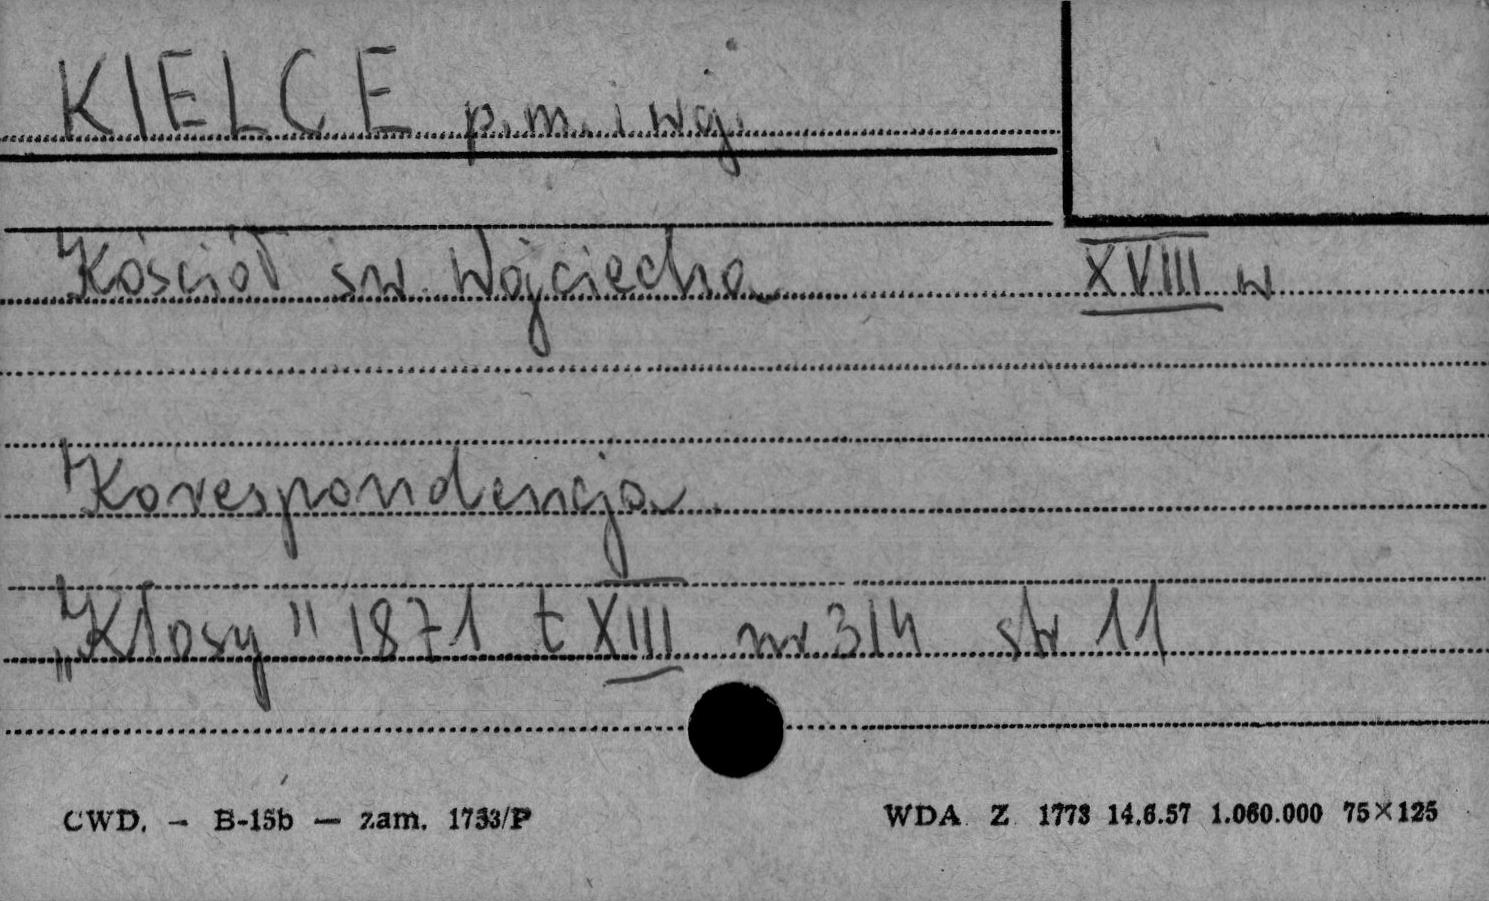 KIELCE p.m. i wg.
Kościół św. Wojciecha XVIII w
Korespondencja.
„Kłosy" 1871 t XIII nr 314 str 11
CWD. — B-15b — zam. 1753/P
WDA Z 1773 14.6.57 1.060.000 75×125